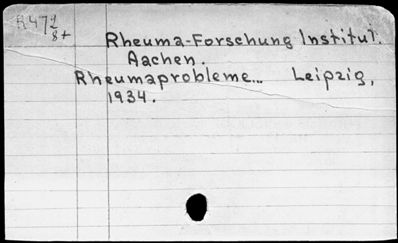 R472
8+
Rheuma-Forschung Institut.
Aachen.
Rheumaprobleme... Leipzig,
1934.